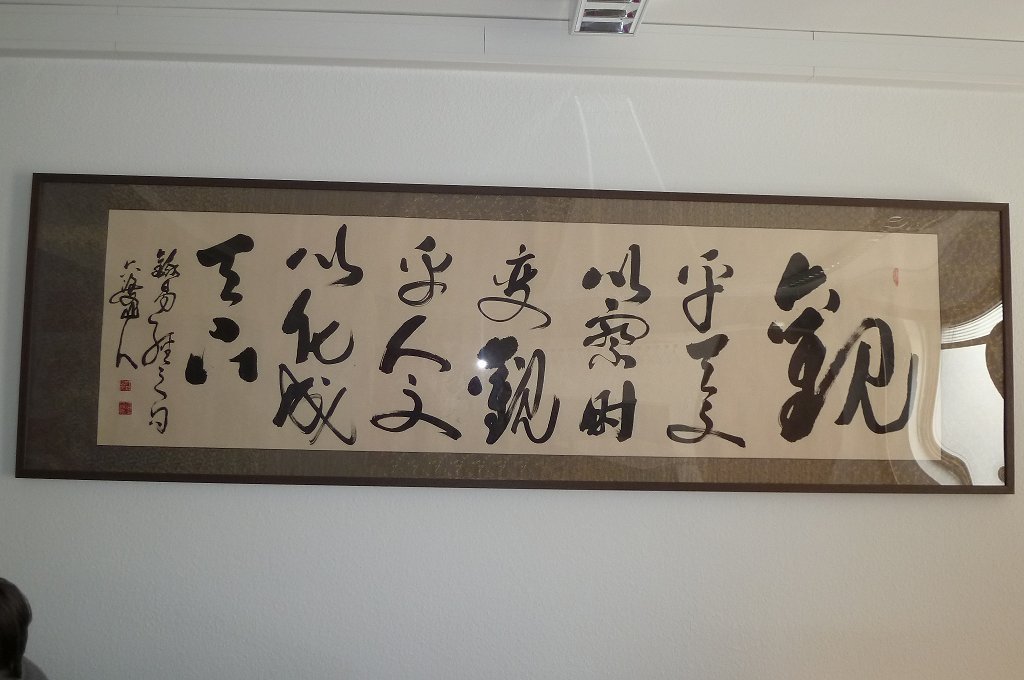 觀
乎天文
以察时
变觀
乎人文
以化成
天下
錄易經之句